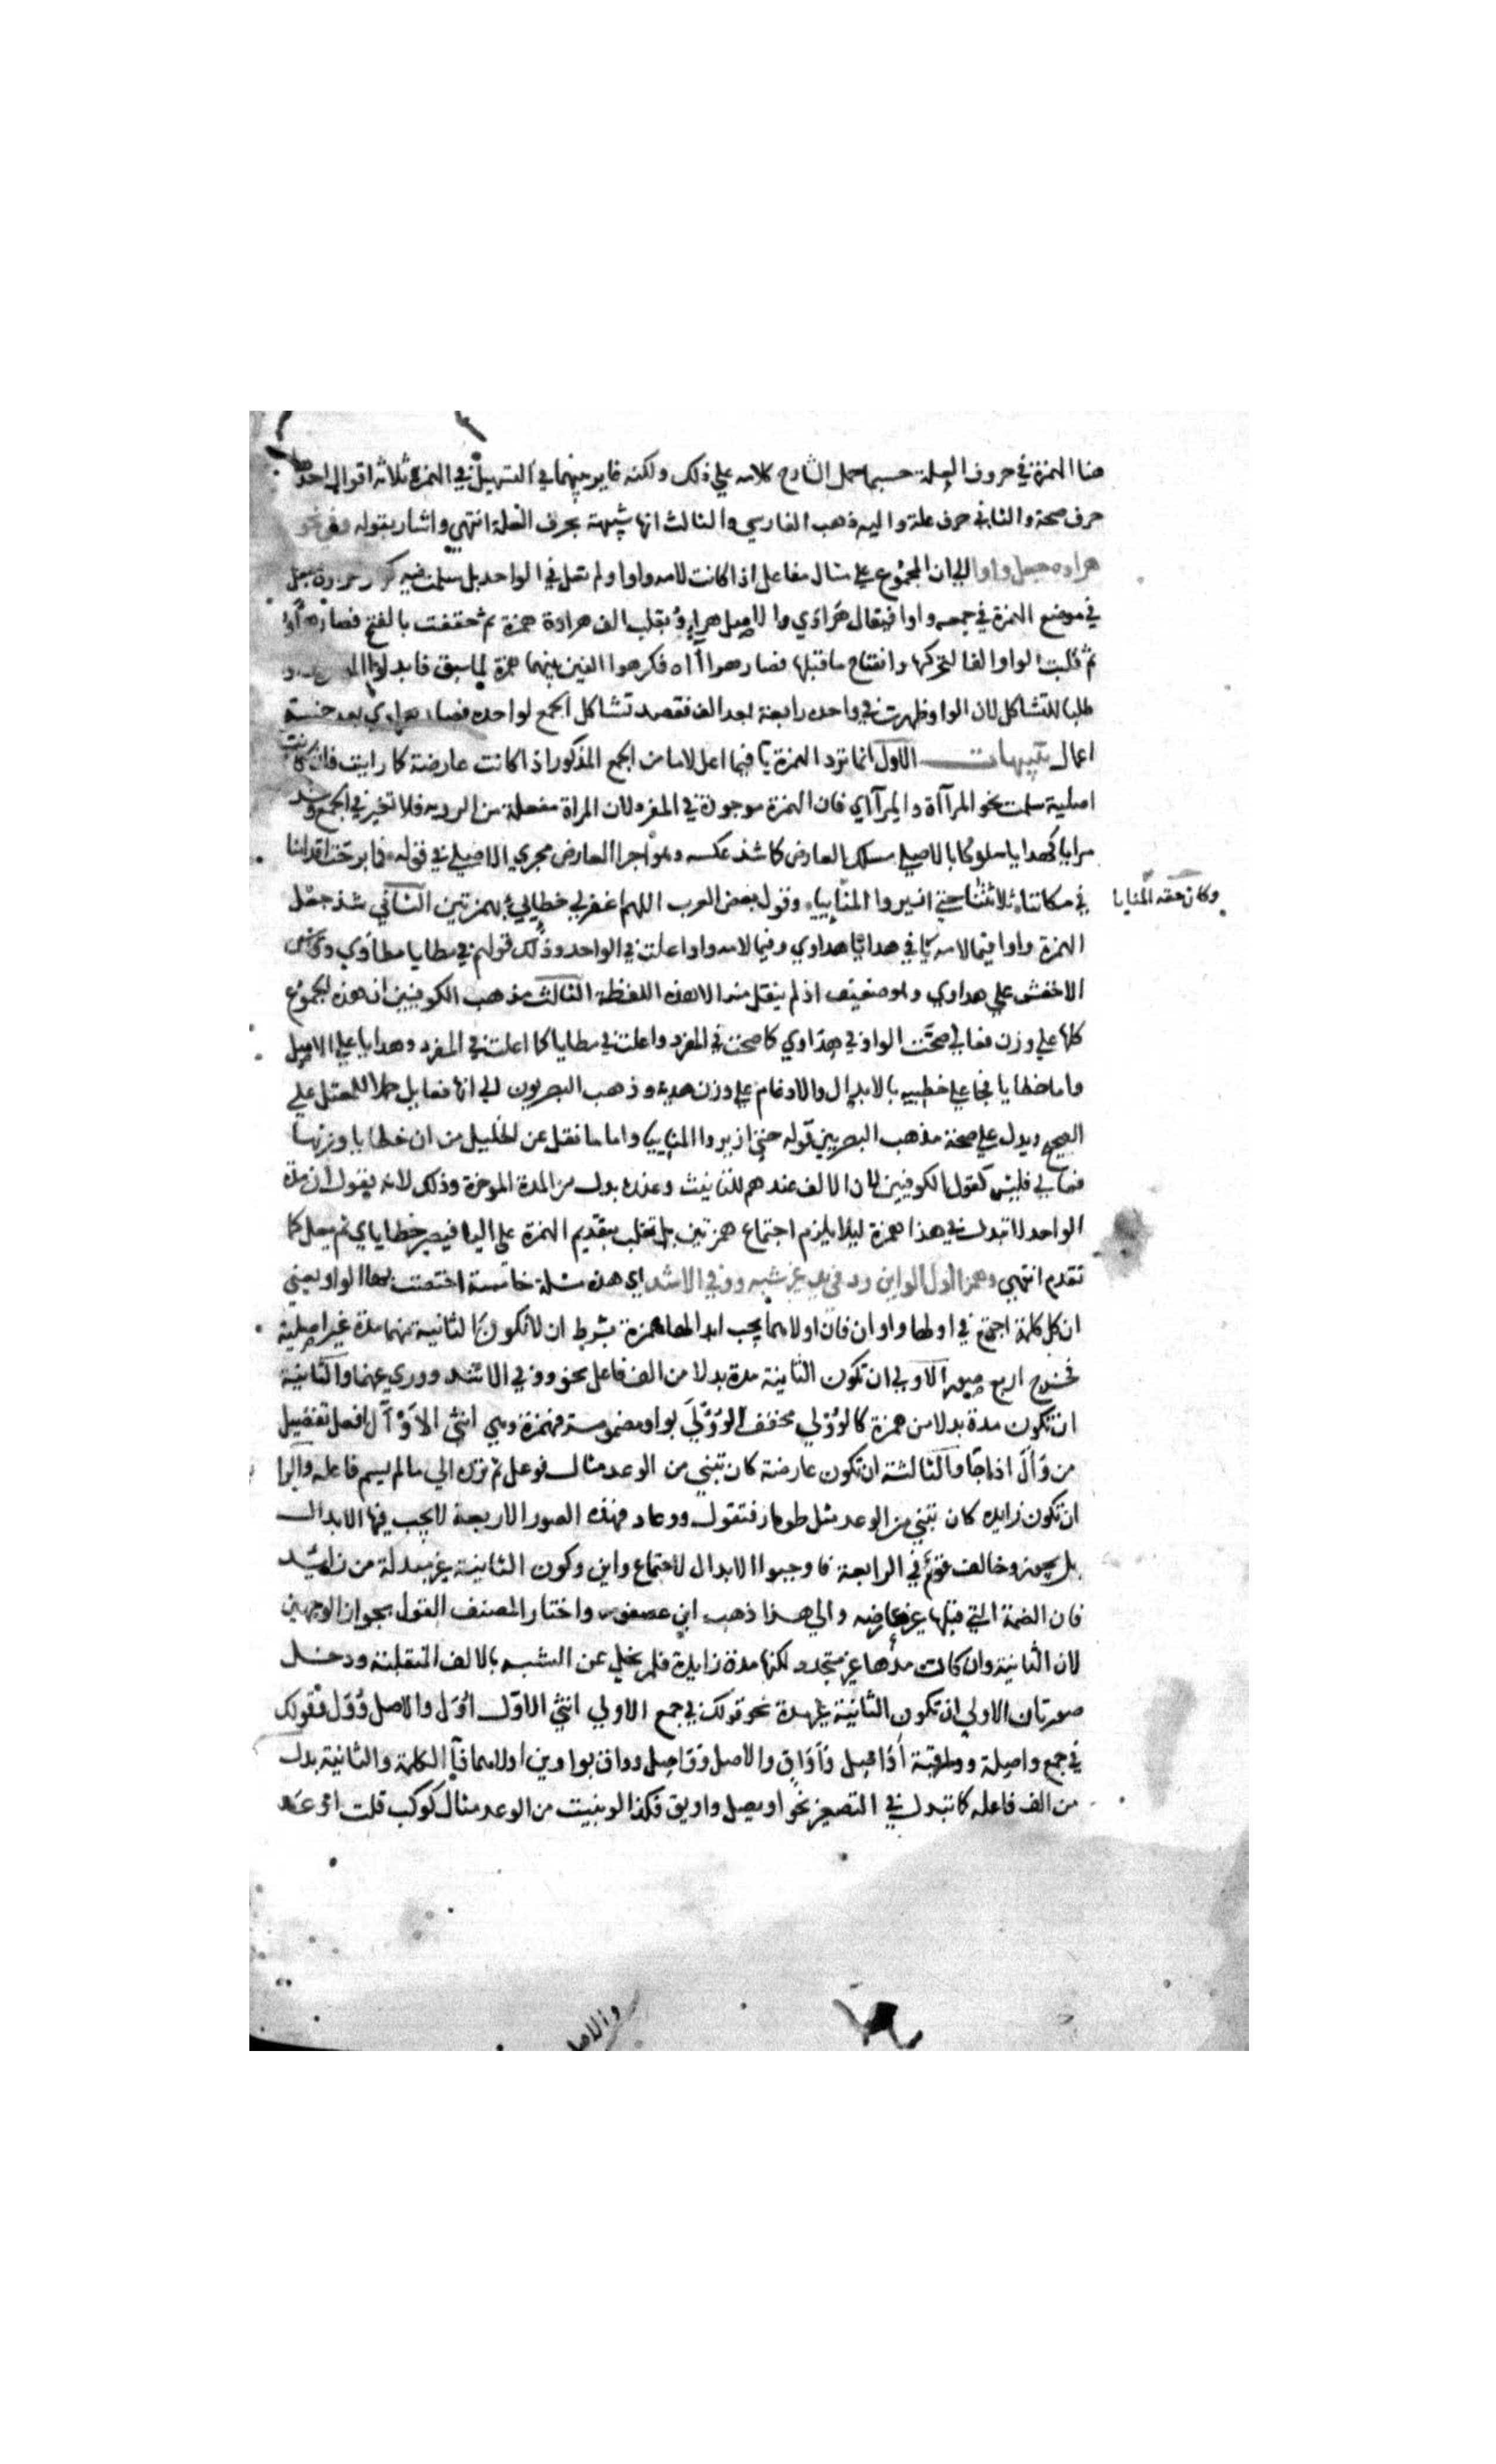 هنا الهمزة في حروف العلة حسبما حمل الشارح كلامه علي ذلك ولكنه غاير بينهما في التسهيل في الهمزة ثلاثة اقوال احدها
حرف صحة والثاني حرف علة واليه ذهب الفارسي والثالث انها شبيهة بحرف العلة انتهي واشار بقوله وفي نحو
هراوه جعل واوا الي ان المجموع علي مثال مفاعل اذا كانت لامه واوا ولم تعل في الواحد بل سلمت فيه كهراوة جعل
في موضع الهمزة في جمعه واوا فيقال هَرَاوَي والاصل هرايِوُ بقلب الف هراوة همزة ثم خففت بالفتح فصار هرآوَ
ثم قلبت الواو الفا لتحركها وانفتاح ماقبلها فصار هراأا فكرهوا الفين بينهما همزة لما سبق فابدلوا الهمزة واو
طلبا للتشاكل لان الواو ظهرت في واحده رابعة بعد الف فقصد تشاكل الجمع لواحده فصار هراوي بعد خمسة
اعمال تنبيهات الاول انما ترد الهمزة يآ فيما اعل لاما من الجمع المذكور اذا كانت عارضة كما رايت فان كانت
اصلية سلمت نحو المرآاة والمرآاي فان الهمزة موجودة في المفرد لان المراة مفعلة من الرويه فلا تغير في الجمع وشذ
مرايا كهدايا سلوكا بالاصلي مسلك العارض كما شذ عكسه وهو اجرا العارض مجري الاصلي في قوله فما برحت اقدامنا
في مكاننا ثلاثتنا حتي ازيروا المنايِيا وقول بعض العرب اللهم اغفر لي خطايِي بهمزتين الثاني شذ جعل
وكان حقه المنايا
الهمزة واوا فيما لامه يآ في هدايا هداوي وفيما لامه واوا علت في الواحد وذلك قولهم في مطايا مطاوي وقاس
الاخفش علي هداوي وهو ضعيف اذ لم ينقل منه الا هذه اللفظة الثالث مذهب الكوفيين ان هذه الجموع
كلها علي وزن فعالي صحّت الواو في هراوي كما صحت في المفرد واعلت في مطايا كما اعلت في المفرد وهدايا علي الاصل
واما خطايا فجا علي خطيه بالابدال والادغام علي وزن هديه وذهب البصريون الي انها فعايل حملا للمعتل علي
الصحيح ويدل علي صحة مذهب البصريين قوله حتي ازيروا المنايِيا واما ما نقل عن الخليل من ان خطايا وزنها
فعالي فليس كقول الكوفيين لان الالف عندهم للتانيث وعنده بدل من المدة الموخرة وذلك لانه يقول ان مدة
الواحد لا تبدل في هذا همزة ليلا يلزم اجتماع همزتين بل تقلب بتقديم الهمزة علي اليا فيصير خطاياي ثم يعل كما
تقدم انتهي وهمزا اول الواوين رد في بدء غير شبه ووفي الاشد اي هذه مسئلة خامسة اختصت بها الواو يعني
ان كل كلمة اجتمع في اولها واوان فان اولاهما يجب ابدالها همزة بشرط ان لا تكون الثانية منهما مدة غير اصلية
فخرج اربع صور الاولي ان تكون الثانية مدة بدلا من الف فاعل نحو ووفي الاشد ووري عنها والثانية
ان تكون مدة بدلا من همزة كالوُوْلي مخفف الوُؤْلَي بواو مضمومة فهمزة وهي انثي الاَوْأَل افعل تفضيل
من وَأَلَ اذا لجا والثالثة ان تكون عارضة كان تبني من الوعد مثال فوعل ثم ترده الي مالم يسم فاعله والرا
ان تكون زايده كان تبني من الوعد مثل طومار فتقول ووعاد فهذه الصور الاربعة لا يجب فيها الابدال
بل يجوز وخالف قوم في الرابعة فاوجبوا الابدال لاجتماع واوين وكون الثانية غير مبدلة من زائد
فان الضمة التي قبلها غير عارضه والي هذا ذهب ابن عصفور واختار المصنف القول بجواز الوجهين
لان الثانية وان كانت مدها غير متجدد لكنها مدة زايدة فلم تخل عن الشبه بالالف المنقلبة ودخل
صورتان الاولي ان تكون الثانية غير مدة نحو قولك في جمع الاولي انثي الاول اُوَل والاصل وُوَل فقولك
في جمع واصلة وواقية أوَاصل وأوَاقٍ والاصل ووَاصل وواق بواوين اولاهما فآ الكلمة والثانية بدل
من الف فاعله كما تبدل في التصغير نحو اويصل واويق فكذا لو بنيت من الوعد مثال كوكب قلت اوعد
والاصل